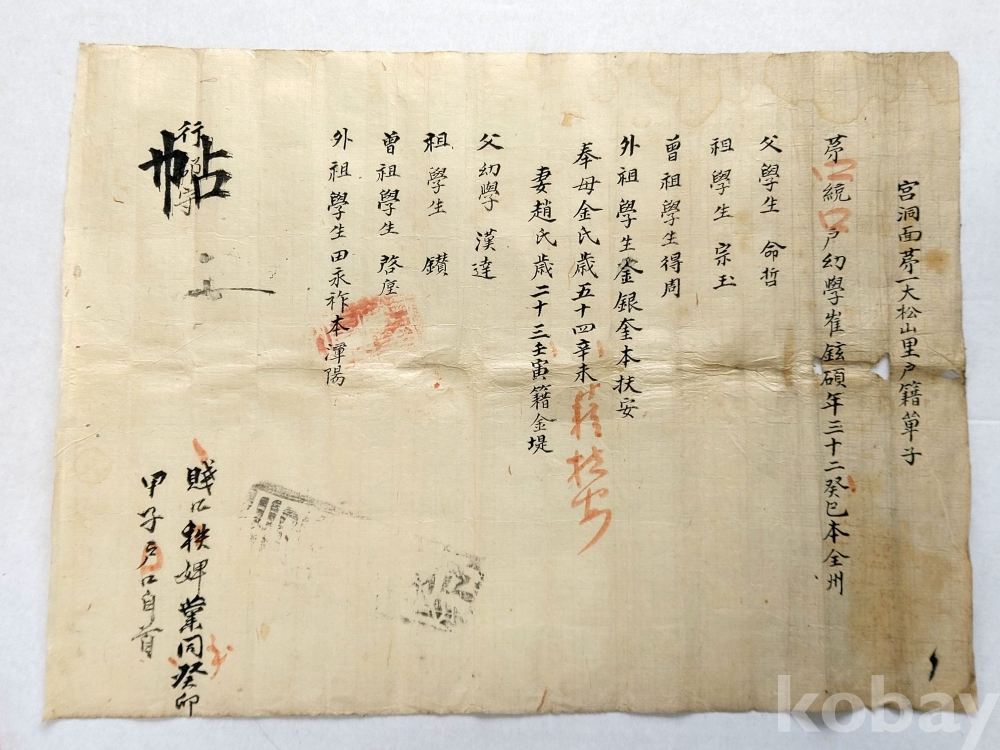 宮洞面苐一大松山里戶籍單子
苐二統口戶幼學崔鉉碩年三十二癸巳本全州
父學生 命哲
祖學生 宗玉
曾祖學生得周
外祖學生金銀奎本扶安
奉母金氏歲五十四辛未籍扶安
妻趙氏歲二十三壬寅籍金堤
父幼學 漢達
祖學生 鑽
曾祖學生 啓
外祖學生田永祚本潭陽
賤口秩婢業同癸卯
甲子戶口自首
行郡守
帖
kobay